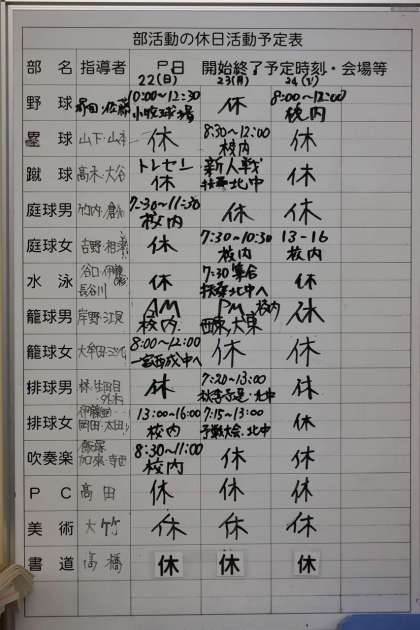 部活動の休日活動予定表
部 名 指導者 月日 開始終了予定時刻・会場等
22(日) 23(月) 24(火)
野 球 ・佐藤 10:00~12:30 休 8:00~12:00
小牧球場 校内
塁 球 山下・山本 休 8:30~12:00 休
校内
蹴 球 高木・大谷 トレセン 新人戦 休
休 扶桑北中
庭球男 竹内・倉 7:30~11:30 休 休
校内
庭球女 吉野・相 休 7:30~10:30 13-16
校内 校内
水 泳 谷口・伊藤 休 7:30集合 休
長谷川 扶桑北中へ
籠球男 岸野・江見 AM PM 校内 休
校内 大県
籠球女 大牟田 8:00~12:00 休 休
中へ
排球男 生田目 休 7:20~13:00 休
北中
排球女 伊藤 13:00~16:00 7:15~13:00 休
岡田・太田 校内 大会 北中
吹奏楽 飯塚 8:30~11:00 休 休
加来・寺 校内
P C 高田 休 休 休
美 術 大竹 休 休 休
書 道 高橋 休 休 休